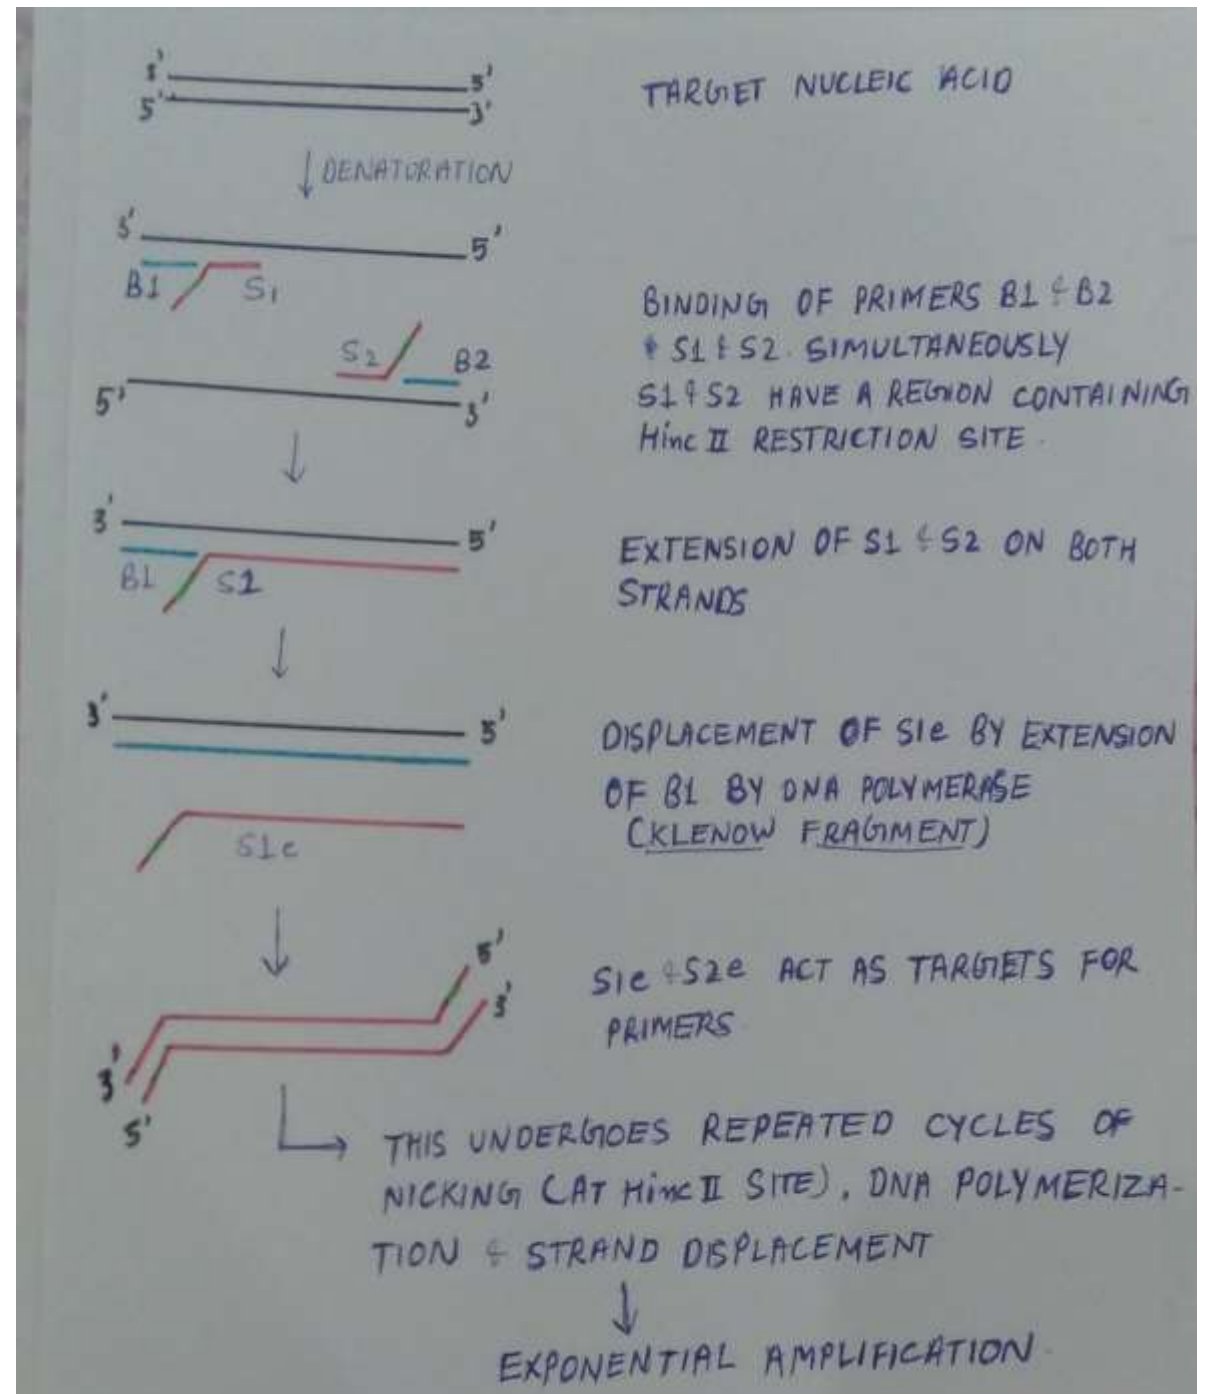 3' 5'
5' 3'
TARGET NUCLEIC ACID
DENATURATION
3' 5'
B1 S1
S2 B2
5' 3'
BINDING OF PRIMERS B1 & B2
& S1 & S2. SIMULTANEOUSLY
S1 & S2 HAVE A REGION CONTAINING
Hinc II RESTRICTION SITE.
3' 5'
B1 S1
EXTENSION OF S1 & S2 ON BOTH
STRANDS
3' 5'
S1e
DISPLACEMENT OF S1e BY EXTENSION
OF B1 BY DNA POLYMERASE
(KLENOW FRAGMENT)
5'
3'
3'
5'
S1e & S2e ACT AS TARGETS FOR
PRIMERS.
THIS UNDERGOES REPEATED CYCLES OF
NICKING (AT Hinc II SITE), DNA POLYMERIZA-
TION & STRAND DISPLACEMENT
EXPONENTIAL AMPLIFICATION.